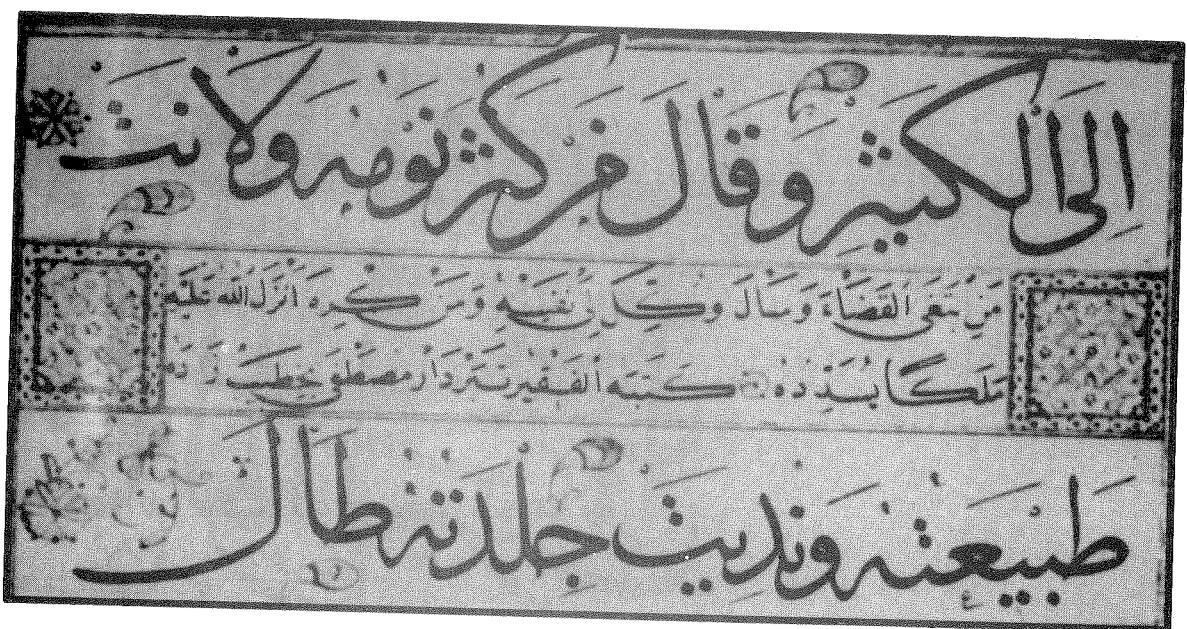 الى الكثير وقال من كثر نومه ولانت
من ابتغى القضاء وسأل وكل الى نفسه ومن اكره انزل الله عليه
ملكا يسدده كتبه الفقير مصطفى خطيب زاده
طبيعته ونديت جلدته طال